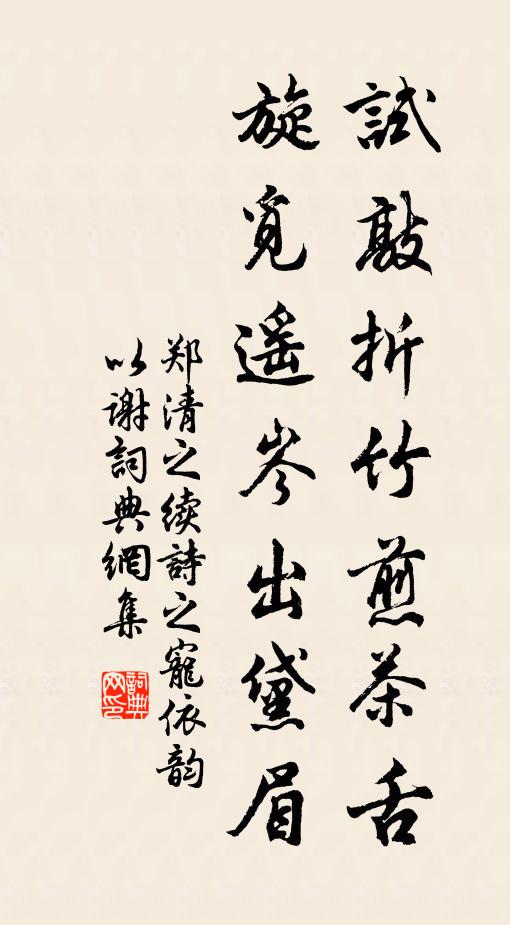 試敲折竹煎茶舌
旋覓遥岑出黛眉
郑清之续詩之寵依韵
以谢詞典網集
詞典网印